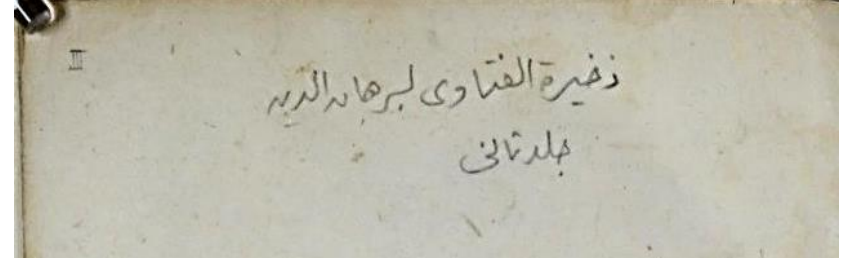 III
ذخيرة الفتاوى لبرهان الدين
جلد ثانى